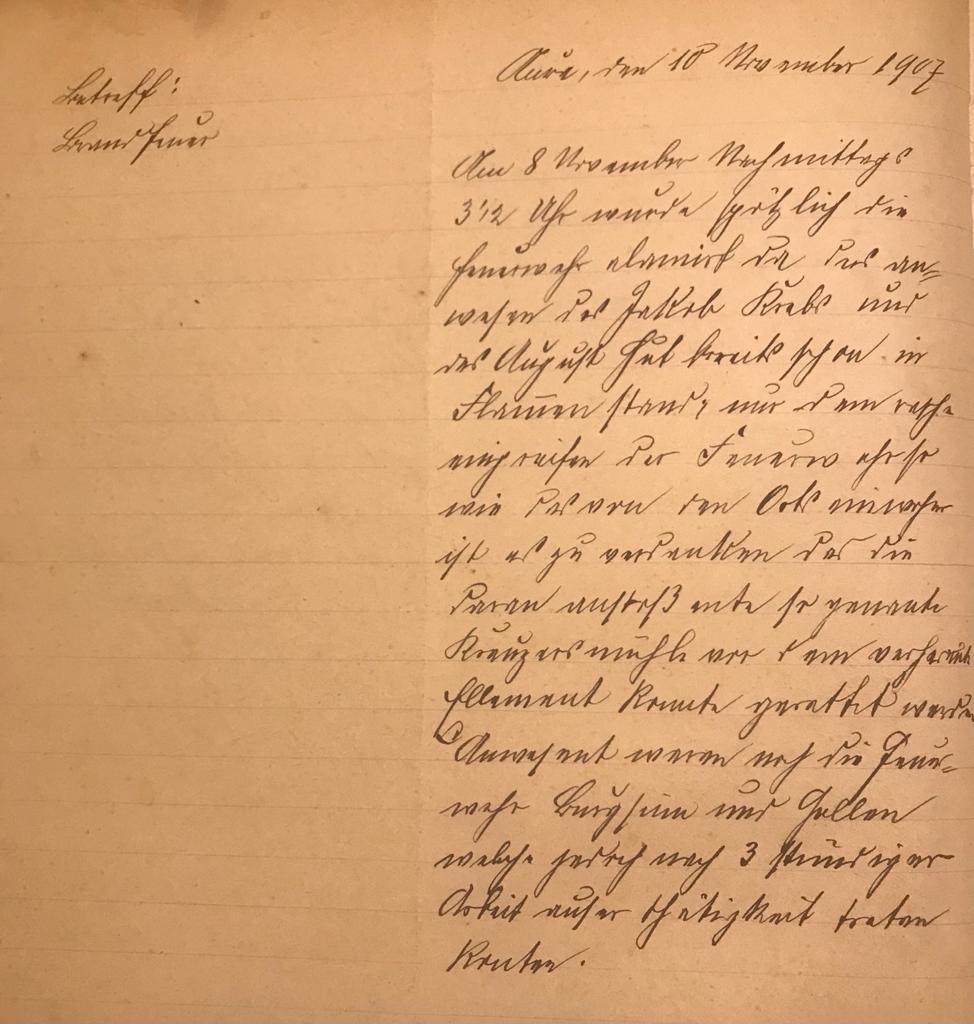 Betreff:
Brandfeuer
Aura, den 10 November 1907
Am 8 November Nachmittags
3 1/2 Uhr wurde plötzlich die
Feuerwehr alamirt da das an=
wesen des Jakob Krebs und
des August Hut bereits schon in
Flam̅en stand, nur dem rasche
eingreifen der Feuerwehr so
wie das von den Orts einwohner
ist es zu verdanken das die
daran anstoßente so genante
Kreuzersmühle vor dem
Ellement konnte gerettet werden
Anwesent waren noch die Feuer=
wehr Burgsinn und
welche jedoch nach 3 stündiger
Arbeit auser thätigkeit treten
konten.